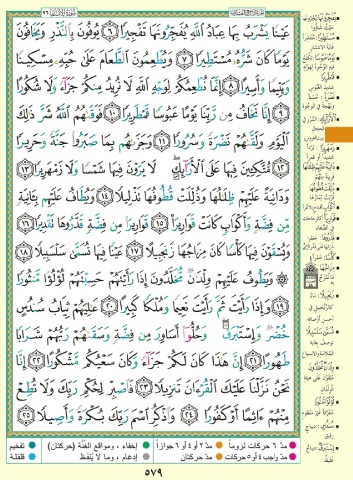 سُورَةُ الإنسَان ٧٦
عَيْنًا يَشْرَبُ بِهَا عِبَادُ ٱللَّهِ يُفَجِّرُونَهَا تَفْجِيرًا ٦ يُوفُونَ بِٱلنَّذْرِ وَيَخَافُونَ
يَوْمًا كَانَ شَرُّهُۥ مُسْتَطِيرًا ٧ وَيُطْعِمُونَ ٱلطَّعَامَ عَلَىٰ حُبِّهِۦ مِسْكِينًا
وَيَتِيمًا وَأَسِيرًا ٨ إِنَّمَا نُطْعِمُكُمْ لِوَجْهِ ٱللَّهِ لَا نُرِيدُ مِنكُمْ جَزَآءً وَلَا شُكُورًا
٩ إِنَّا نَخَافُ مِن رَّبِّنَا يَوْمًا عَبُوسًا قَمْطَرِيرًا ١٠ فَوَقَىٰهُمُ ٱللَّهُ شَرَّ ذَٰلِكَ
ٱلْيَوْمِ وَلَقَّىٰهُمْ نَضْرَةً وَسُرُورًا ١١ وَجَزَىٰهُم بِمَا صَبَرُوا۟ جَنَّةً وَحَرِيرًا
١٢ مُّتَّكِـِٔينَ فِيهَا عَلَى ٱلْأَرَآئِكِ ۖ لَا يَرَوْنَ فِيهَا شَمْسًا وَلَا زَمْهَرِيرًا ١٣
وَدَانِيَةً عَلَيْهِمْ ظِلَـٰلُهَا وَذُلِّلَتْ قُطُوفُهَا تَذْلِيلًا ١٤ وَيُطَافُ عَلَيْهِم بِـَٔانِيَةٍ
مِّن فِضَّةٍ وَأَكْوَابٍ كَانَتْ قَوَارِيرَا۠ ١٥ قَوَارِيرَا۟ مِن فِضَّةٍ قَدَّرُوهَا تَقْدِيرًا ١٦
وَيُسْقَوْنَ فِيهَا كَأْسًا كَانَ مِزَاجُهَا زَنجَبِيلًا ١٧ عَيْنًا فِيهَا تُسَمَّىٰ سَلْسَبِيلًا ١٨
۞ وَيَطُوفُ عَلَيْهِمْ وِلْدَٰنٌ مُّخَلَّدُونَ إِذَا رَأَيْتَهُمْ حَسِبْتَهُمْ لُؤْلُؤًا مَّنثُورًا
١٩ وَإِذَا رَأَيْتَ ثَمَّ رَأَيْتَ نَعِيمًا وَمُلْكًا كَبِيرًا ٢٠ عَـٰلِيَهُمْ ثِيَابُ سُندُسٍ
خُضْرٌ وَإِسْتَبْرَقٌ ۖ وَحُلُّوٓا۟ أَسَاوِرَ مِن فِضَّةٍ وَسَقَىٰهُمْ رَبُّهُمْ شَرَابًا
طَهُورًا ٢١ إِنَّ هَـٰذَا كَانَ لَكُمْ جَزَآءً وَكَانَ سَعْيُكُم مَّشْكُورًا ٢٢ إِنَّا
نَحْنُ نَزَّلْنَا عَلَيْكَ ٱلْقُرْءَانَ تَنزِيلًا ٢٣ فَٱصْبِرْ لِحُكْمِ رَبِّكَ وَلَا تُطِعْ
مِنْهُمْ ءَاثِمًا أَوْ كَفُورًا ٢٤ وَٱذْكُرِ ٱسْمَ رَبِّكَ بُكْرَةً وَأَصِيلًا ٢٥
مدّ ٦ حركات لزوماً مدّ ٢ أو ٤ أو ٦ جوازاً إخفاء، ومواقع الغُنَّة (حركتان) تفخيم
مدّ واجب ٤ أو ٥ حركات مدّ حركتان إدغام، وما لا يُلفَظ قلقلة
٥٧٩